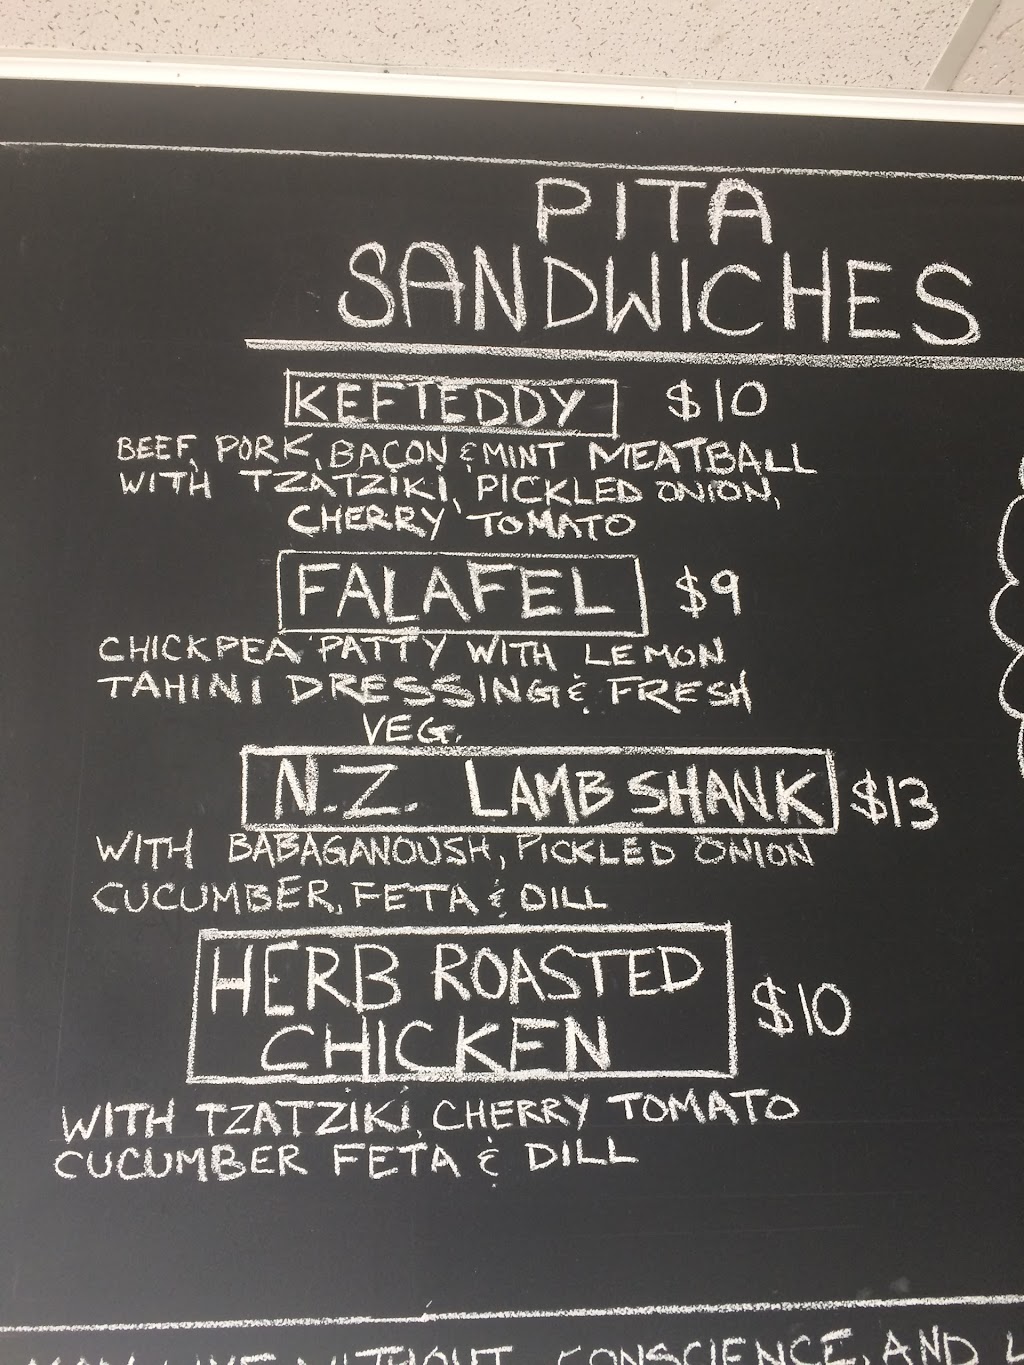 PITA
SANDWICHES
KEFTEDDY $10
BEEF, PORK, BACON & MINT MEATBALL
WITH TZATZIKI, PICKLED ONION,
CHERRY TOMATO
FALAFEL $9
CHICKPEA PATTY WITH LEMON
TAHINI DRESSING & FRESH
VEG.
N.Z. LAMB SHANK $13
WITH BABAGANOUSH, PICKLED ONION
CUCUMBER, FETA & DILL
HERB ROASTED $10
CHICKEN
WITH TZATZIKI, CHERRY TOMATO
CUCUMBER FETA & DILL
WITHOUT CONSCIENCE, AND